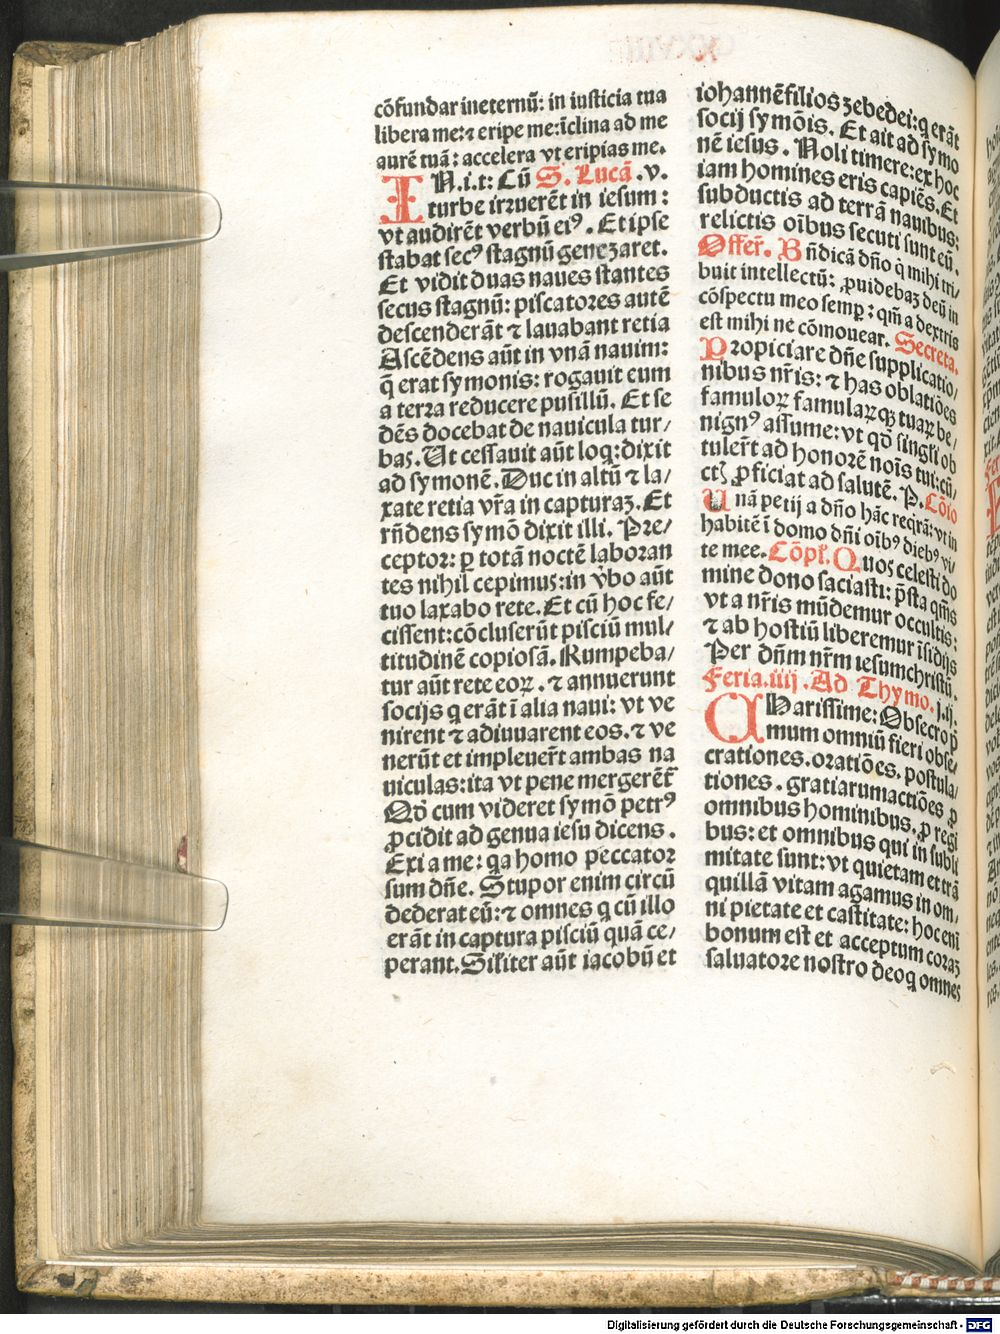 cōfundar ineternū: in iusticia tua
libera me: ⁊ eripe me: īclina ad me
aurē tuā: accelera vt eripias me.
IN.i.t: Cū S. Lucā .v.
turbe irruerēt in iesum:
vt audirēt verbū eiꝰ. Et ipse
stabat secꝰ stagnū genezaret.
Et vidit duas naues stantes
secus stagnū: piscatores autē
descenderāt ⁊ lauabant retia
Ascēdens aūt in vnā nauim:
q̄ erat symonis: rogauit eum
a terra reducere pusillū. Et se
dēs docebat de nauicula tur/
bas. Ut cessauit aūt loq: dixit
ad symonē. Duc in altū ⁊ la/
xate retia vr̄a in capturaꝫ. Et
rn̄dens symō dixit illi. Pre/
ceptor: ꝑ totā noctē laboran
tes nihil cepimus: in v̄bo aūt
tuo laxabo rete. Et cū hoc fe/
cissent: cōcluserūt pisciū mul/
titudinē copiosā. Rumpeba/
tur aūt rete eoꝝ. ⁊ annuerunt
socijs q erāt ī alia naui: vt ve
nirent ⁊ adiuuarent eos. ⁊ ve
nerūt et impleuer̄t ambas na
uiculas: ita vt pene mergerēt̄
Qḋ cum videret symō petrꝰ
ꝓcidit ad genua iesu dicens.
Exi a me: qa homo peccator
sum dn̄e. Stupor enim circū
dederat eū: ⁊ omnes q cū illo
erāt in captura pisciū quā ce/
perant. Sil̄iter aūt iacobū et
iohannē filios zebedei: q erāt
socij symōis. Et ait ad symo
nē iesus. Noli timere: ex hoc
iam homines eris capiēs. Et
subductis ad terrā nauibus:
relictis oībus secuti sunt eū.
Offer̄. Bn̄dicā dn̄o q̇ mihi tri/
buit intellectū: ꝓuidebaꝫ deū in
cōspectu meo semꝑ: qm̄ a dextris
est mihi ne cōmouear. Secreta.
Propiciare dn̄e supplicatio/
nibus nr̄is: ⁊ has oblatiōes
famuloꝝ famulaꝝqꝫ tuaꝝ be/
nignꝰ assume: vt qḋ singl̄i ob
tuler̄t ad honorē noīs tui: cū/
ctꝭ ꝓficiat ad salutē. P. Cōio
Unā petij a dn̄o hāc reqrā: vt in
habitē ī domo dn̄i oībꝰ diebꝰ vi/
te mee. Cōpl̄. Quos celesti do
mine dono saciasti: p̄sta qm̄s
vt a nr̄is mūdemur occultis:
⁊ ab hostiū liberemur īsidijs
Per dn̄m nr̄m iesumchristū.
Feria.iiij. Ad Thymo. j.ij.
CHarissime: Obsecro p̄
mum omniū fieri obse/
crationes. oratiōes. postula/
tiones. gratiarumactiōes ꝓ
omnibus hominibus. ꝓ regi
bus: et omnibus qui in subli
mitate sunt: vt quietam et trā
quillā vitam agamus in om/
ni pietate et castitate: hoc enī
bonum est et acceptum coraꝫ
saluatore nostro deo q omnes
Digitalisierung gefördert durch die Deutsche Forschungsgemeinschaft - DFG